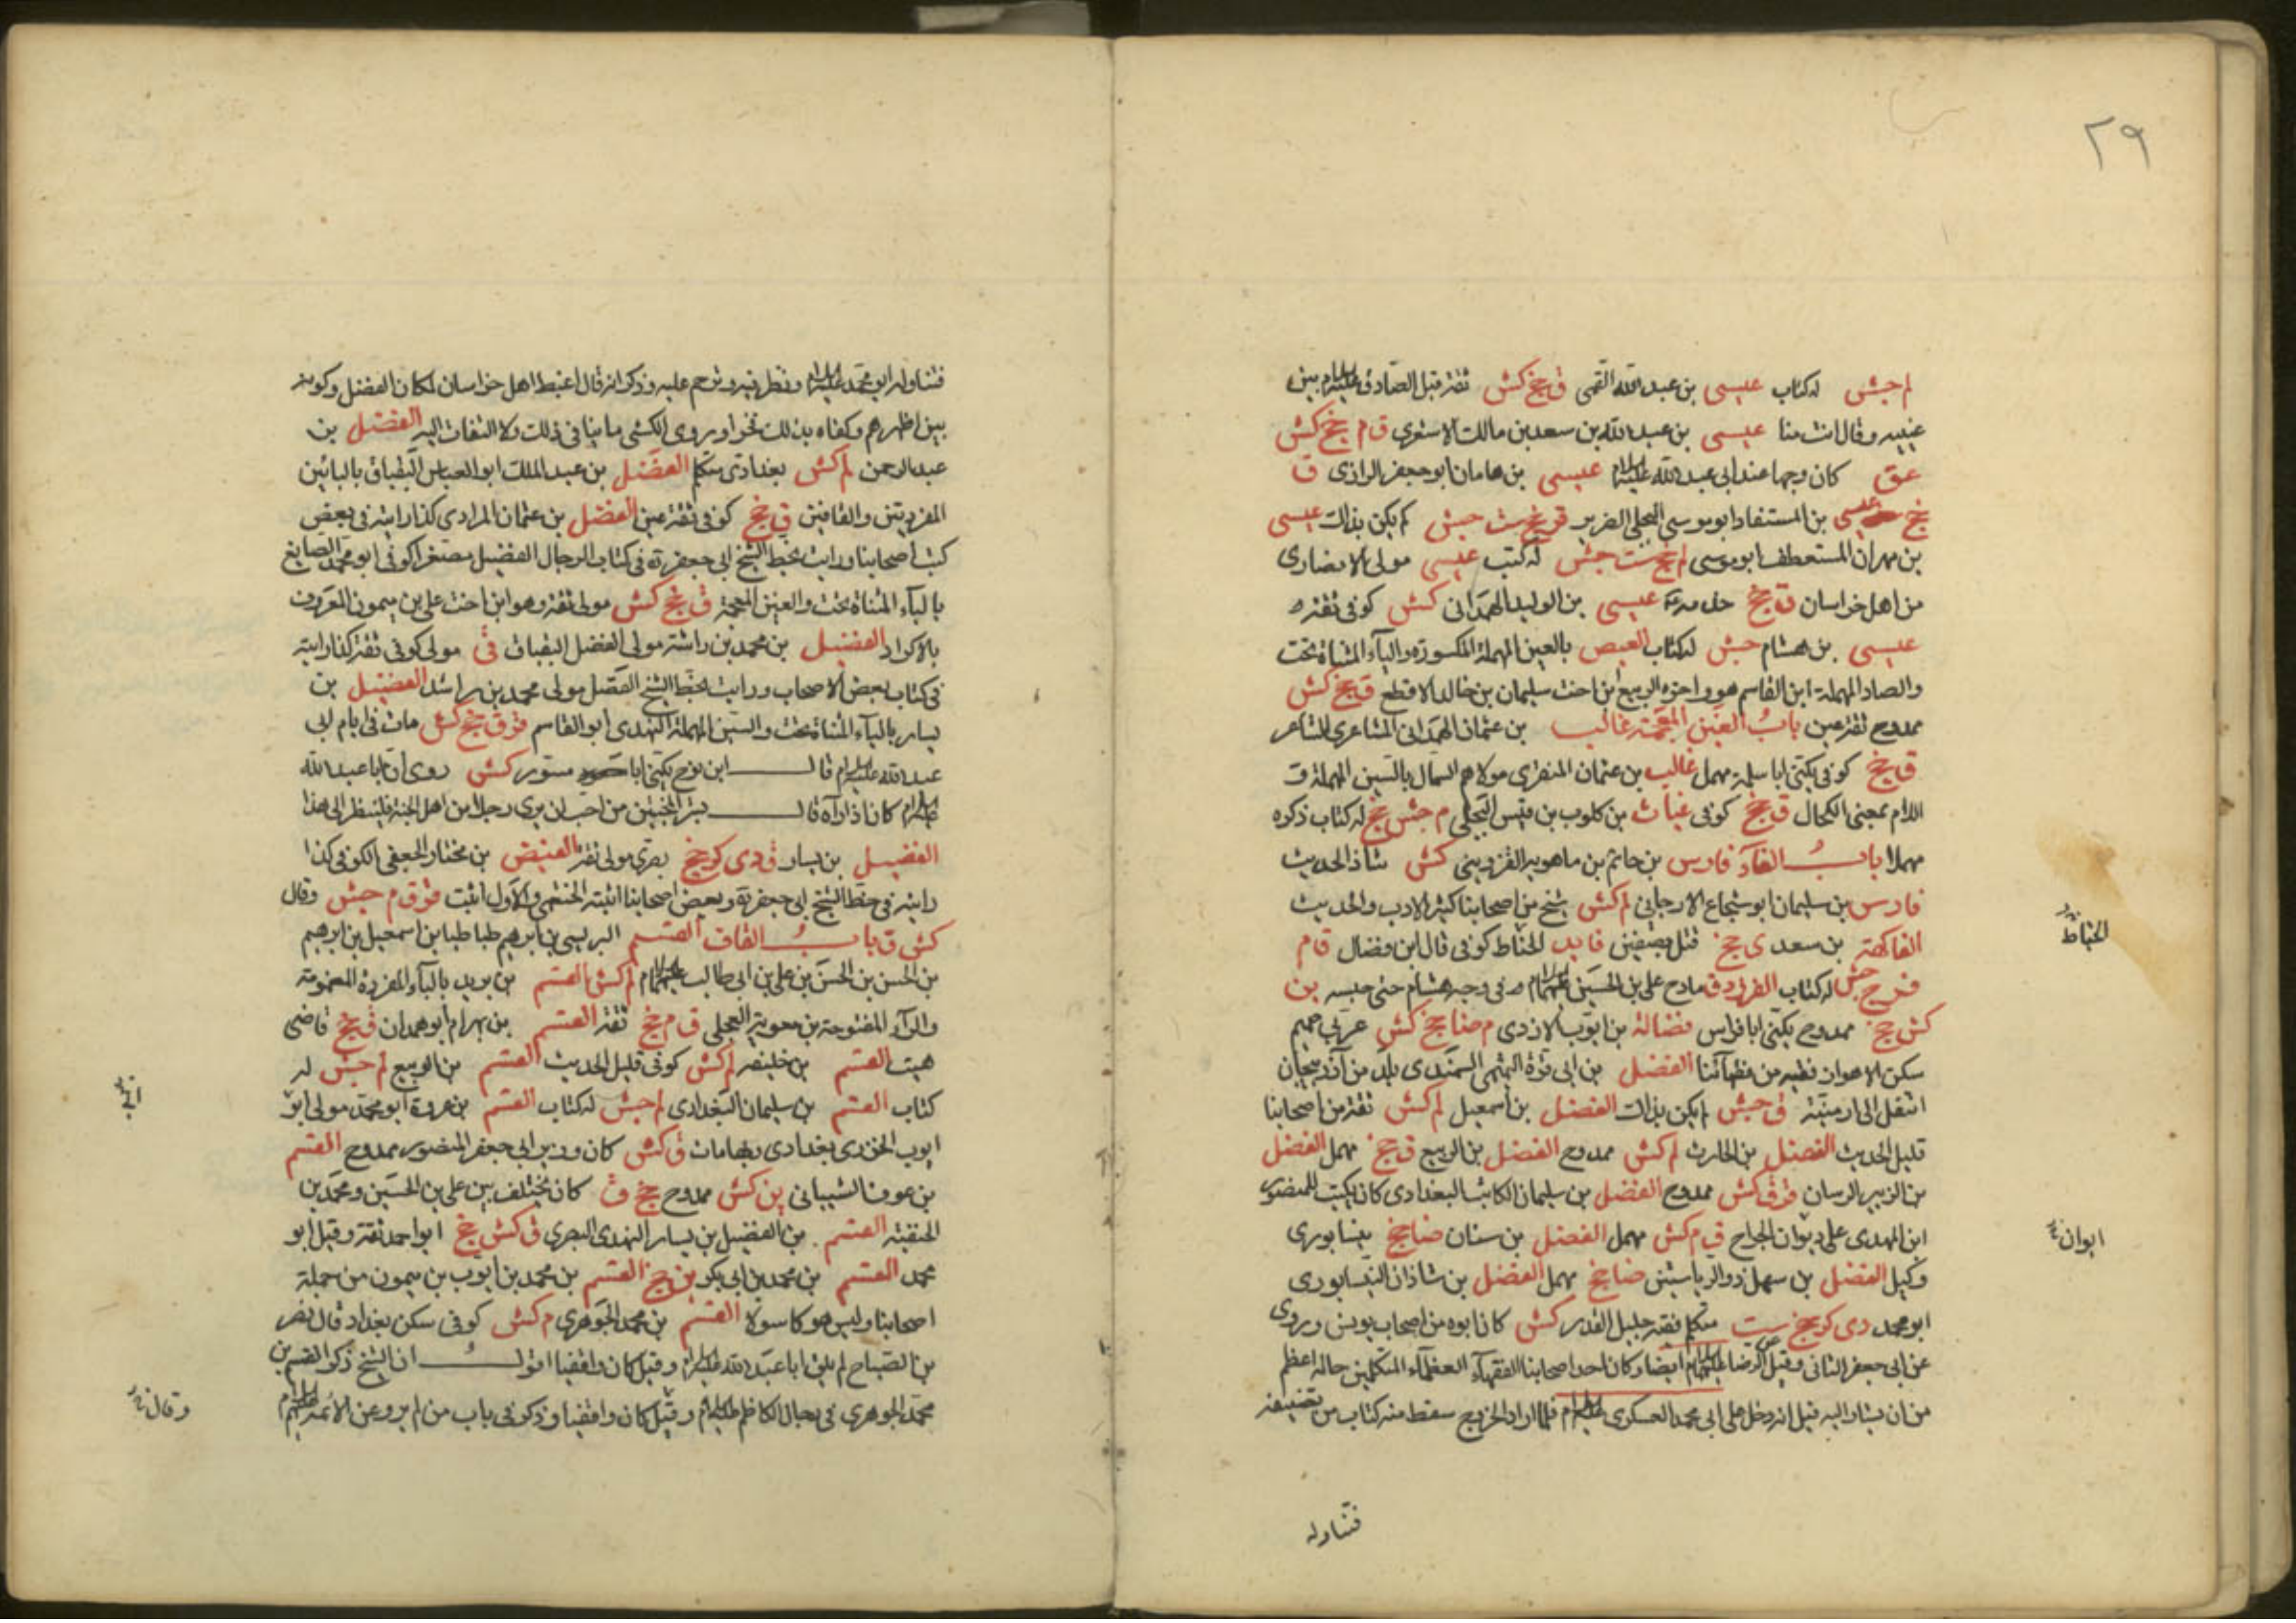 ٢٩
لم جش له كتاب عيسى بن عبد الله القمى ق جخ كش ثقة قبل الصادق عليه السلام بين
عينيه وقال انت منا عيسى بن عبد الله بن سعد بن مالك الاشعرى ق م جخ كش
عق كان وجها عند ابى عبد الله عليه السلام عيسى بن هامان ابو جعفر الرازى ق
جخ عيسى بن المستفاد ابو موسى البجلى الضرير جخ ست جش لم يكن بذاك عيسى
بن مهران المستعطف ابو موسى لم جخ ست جش له كتب عيسى مولى الانصارى
من اهل خراسان ق جخ عيسى بن الوليد الهمدانى كش كوفى ثقة
عيسى بن هشام جش له كتاب العيص بالعين المهملة المكسورة والياء المثناة تحت
والصاد المهملة ابن القاسم هو واخوه الربيع ابن اخت سليمان بن خالد الاقطع ق جخ كش
ممدوح ثقة عين باب الغين المعجمة غالب بن عثمان الهمدانى المشاعرى الشاعر
ق جخ كوفى يكنى ابا سلمة مهمل غالب بن عثمان المنقرى مولاهم السمال بالسين المهملة و
اللام بمعنى الكحال ق جخ كوفى غياث بن كلوب بن فيس البجلى م جش جخ له كتاب ذكره
مهملا باب الفاء فارس بن حاتم بن ماهويه القزوينى كش شاذ الحديث
فارس بن سليمان ابو شجاع الارجانى لم كش شيخ من اصحابنا كثير الادب والحديث
الفاكهة بن سعد ى جخ قتل بصفين فايد الحناط كوفى قال ابن فضال ق م
جش له كتاب الفرزدق مادح على بن الحسين عليهما السلام فى وجه هشام حتى حبسه بن
كش جخ ممدوح يكنى ابا فراس فضالة بن ايوب الازدى م ضا جخ كش عربى صميم
سكن الاهواز فقيه من فقهائنا الفضل بن ابى قرة التميمى السمندى بلد من آذربيجان
انتقل الى ارمنية ق جش لم يكن بذاك الفضل بن اسمعيل لم كش ثقة من اصحابنا
قليل الحديث الفضل بن الحارث لم كش ممدوح الفضل بن الربيع ق جخ مهمل الفضل
بن الزبير الرسان قر ق كش ممدوح الفضل بن سليمان الكاتب البغدادى كان يكتب للمنصور
ابن المهدى على ديوان الخراج ق م كش مهمل الفضل بن سنان ضا جخ نيسابورى
وكيل الفضل بن سهل ذو الرياستين ضا جخ مهمل الفضل بن شاذان النيسابورى
ابو محمد دى كر جخ ست متكلم فقيه جليل القدر كش كان ابوه من اصحاب يونس وروى
عن ابى جعفر الثانى وقيل عن الرضا عليهما السلام ايضا وكان احد اصحابنا الفقهاء العظماء المتكلمين حاله اعظم
من ان يشار اليه قيل انه دخل على ابى محمد العسكرى عليه السلام فلما اراد الخروج سقط منه كتاب من تصنيفه
فتناوله
الحناط
ابوان
فتناوله ابو محمد عليه السلام ونظر فيه وترحم عليه وذكر انه قال اغبط اهل خراسان لمكان الفضل وكونه
بين اظهرهم وكفاه بذلك فخرا وروى الكشى ما ينافى ذلك ولا التفات اليه الفضل بن
عبد الرحمن لم كش بغدادى متكلم الفضل بن عبد الملك ابو العباس البقباق بالبائين
المفردتين والقافين ق جخ كوفى ثقة عين الفضل بن عثمان المرادى كذا رايته فى بعض
كتب اصحابنا ورايت بخط الشيخ ابى جعفر ره فى كتاب الرجال الفضيل مصغرا كوفى ابو محمد الصايغ
بالياء المثناة تحت والغين المعجمة ق جخ كش مولى ثقة وهو ابن اخت على بن ميمون المعروف
بالاكراد الفضيل بن محمد بن راشد مولى الفضل البقباق ق مولى كوفى ثقة كذا رايته
فى كتاب بعض الاصحاب ورايت بخط الشيخ الفضل مولى محمد بن راشد الفضيل بن
يسار بالياء المثناة تحت والسين المهملة النهدى ابو القاسم قر ق جخ كش مات فى ايام ابى
عبد الله عليه السلام قال ابن نوح يكنى ابا مسور كش روى ان ابا عبد الله
عليه السلام كان اذا رآه قال بشر المخبتين من احب ان يرى رجلا من اهل الجنة فلينظر الى هذا
الفضيل بن يسار ق دى كر جخ بصرى مولى ثقة الفيض بن مختار الجعفى الكوفى كذا
رايته فى خط الشيخ ابى جعفر ره وبعض اصحابنا اثبته الخثعمى والاول اثبت قر ق م جش وقال
كش ق باب القاف القسم البريسى بن ابرهيم طباطبا بن اسمعيل بن ابرهيم
بن الحسن بن الحسن بن على بن ابى طالب عليهم السلام لم كش القسم بن بريد بالباء المفردة المضمومة
والراء المفتوحة بن معوية العجلى ق م جخ ثقة القسم بن بهرام ابو همدان ق جخ قاضى
هيت القسم بن خليفه لم كش كوفى قليل الحديث القسم بن الربيع لم جش له
كتاب القسم بن سليمان البغدادى لم جش له كتاب القسم بن عروة ابو محمد مولى ابو
ايوب الخوزى بغدادى وبها مات ق كش كان وزير ابى جعفر المنصور ممدوح القسم
بن عوف الشيبانى ين كش ممدوح جخ ق كان يختلف بين على بن الحسين ومحمد بن
الحنفية القسم بن الفضيل بن يسار النهدى البصرى ق كش جخ ابو احمد ثقة وقيل ابو
محمد القسم بن محمد بن ابى بكر ين جخ القسم بن محمد بن ايوب بن ميمون من جملة
اصحابنا وليس هو كاسولا القسم بن محمد الجوهرى م كش كوفى سكن بغداد قال نصر
بن الصباح لم يلق ابا عبد الله عليه السلام وقيل كان واقفيا اقول ان الشيخ ذكر القسم بن
محمد الجوهرى فى رجال الكاظم عليه السلام وقيل كان واقفيا وذكر فى باب من لم يرو عن الائمة عليهم السلام
وقال